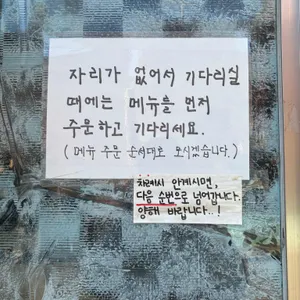 자리가 없어서 기다리실
때에는 메뉴를 먼저
주문하고 기다리세요.
(메뉴 주문 순서대로 모시겠습니다.)
차례시 안계시면,
다음 순번으로 넘어갑니다.
양해 바랍니다..!